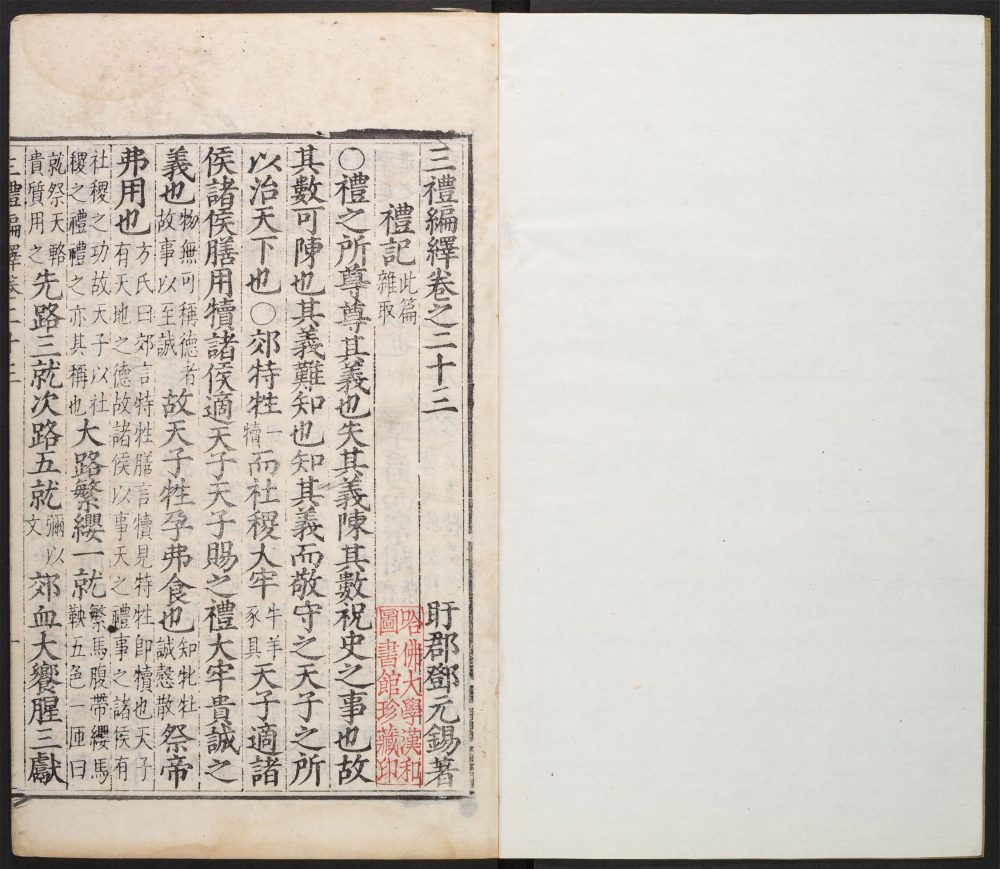 三禮編繹卷之二十三 盱郡鄧元錫著
禮記 此篇雜取
哈佛大學漢和圖書館珍藏印
○禮之所尊尊其義也失其義陳其數祝史之事也故
其數可陳也其義難知也知其義而敬守之天子之所
以治天下也○郊特牲一犢而社稷大牢牛羊豕具天子適諸
侯諸侯膳用犢諸侯適天子天子賜之禮大牢貴誠之
義也物無可稱德者故事以至誠故天子牲孕弗食也知牝牡誠慤散祭帝
弗用也方氏曰郊言特牲膳言犢見特牲卽犢也天子有天地之德故諸侯以事天之禮事之諸侯有
社稷之功故天子以社稷之禮禮之亦其稱也大路繁纓一就繁馬腹帶纓馬鞅五色一匝曰
就祭天輅貴質用之先路三就次路五就彌以文郊血大饗腥三獻
三禮編繹卷二十三 一